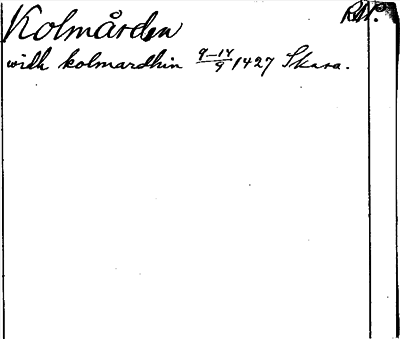 Kolmården
R.W.
widh kolmardhin 9-14/9 1427 Skara.